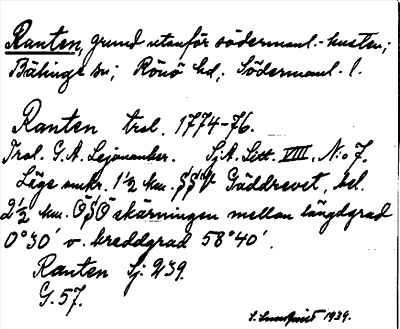 Ranten, grund utanför södermanl.-kusten;
Bälinge sn; Rönö hd; Södermanl. l.
Ranten trol. 1774-76.
Trol. G. A. Lejonancker. Sj.A. Litt. VIII. No 7.
Läge unkr. 1 1/2 km. SSV Gäddrevet, bel.
2 1/2 km. ÖSÖ skärningen mellan längdgrad
0°30′ v. breddgrad 58°40′.
Ranten Sj. 239.
G. 57.
S. Lundqvist 1934.